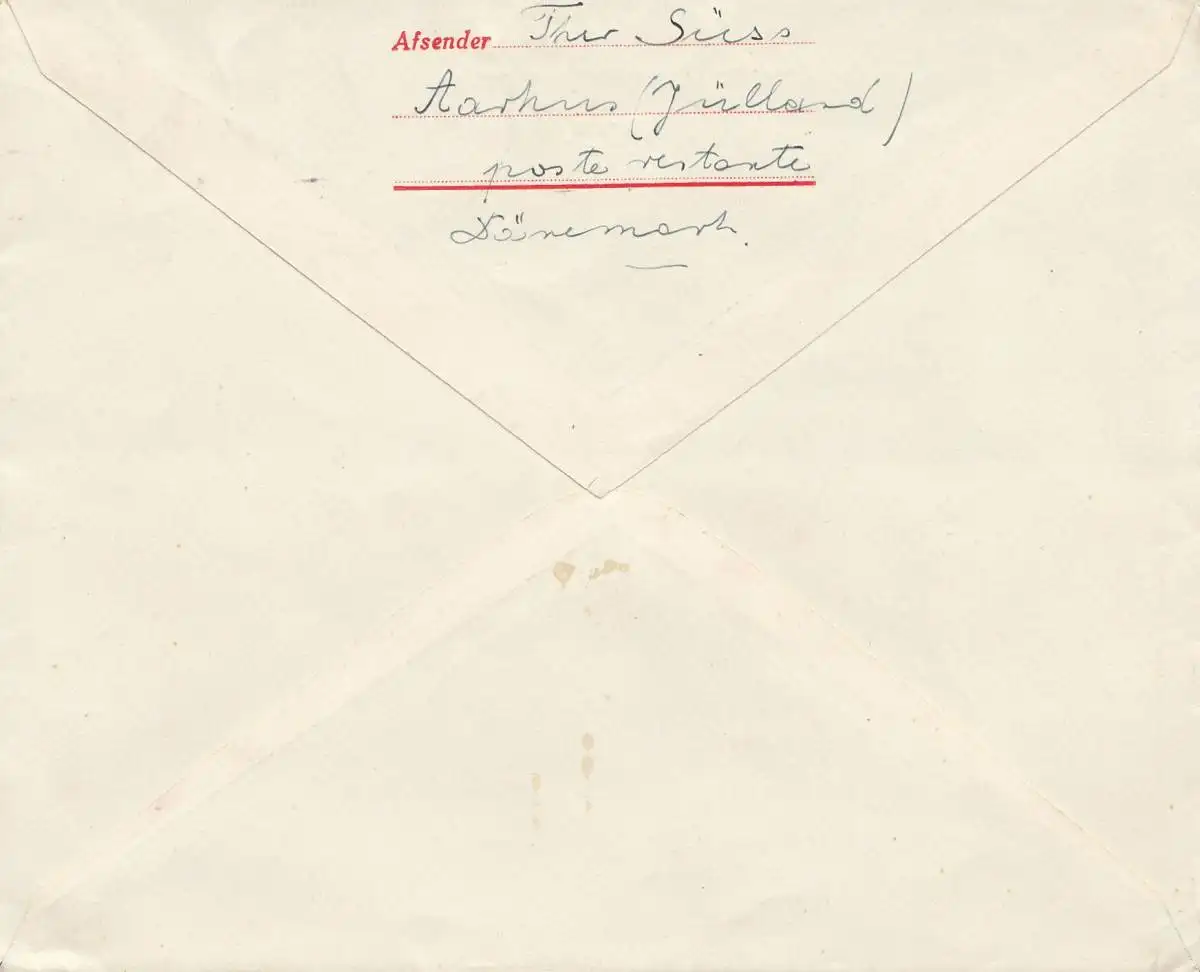 Afsender Ther Süss
Aarhus (Jülland)
poste restante
Dänemark.